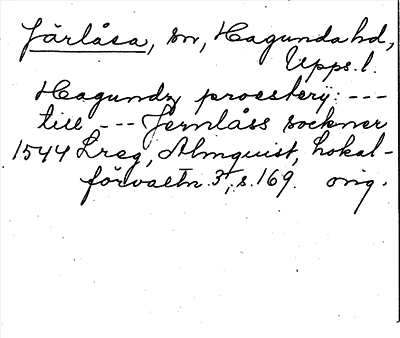 Järlåsa, sn, Hagunda hd,
Upps. l.
Hagundz proesterij: ---
till --- Jernlåss sockner
1544 Lreg, Almquist, Lokal-
förvaltn. 3, s. 169. orig.